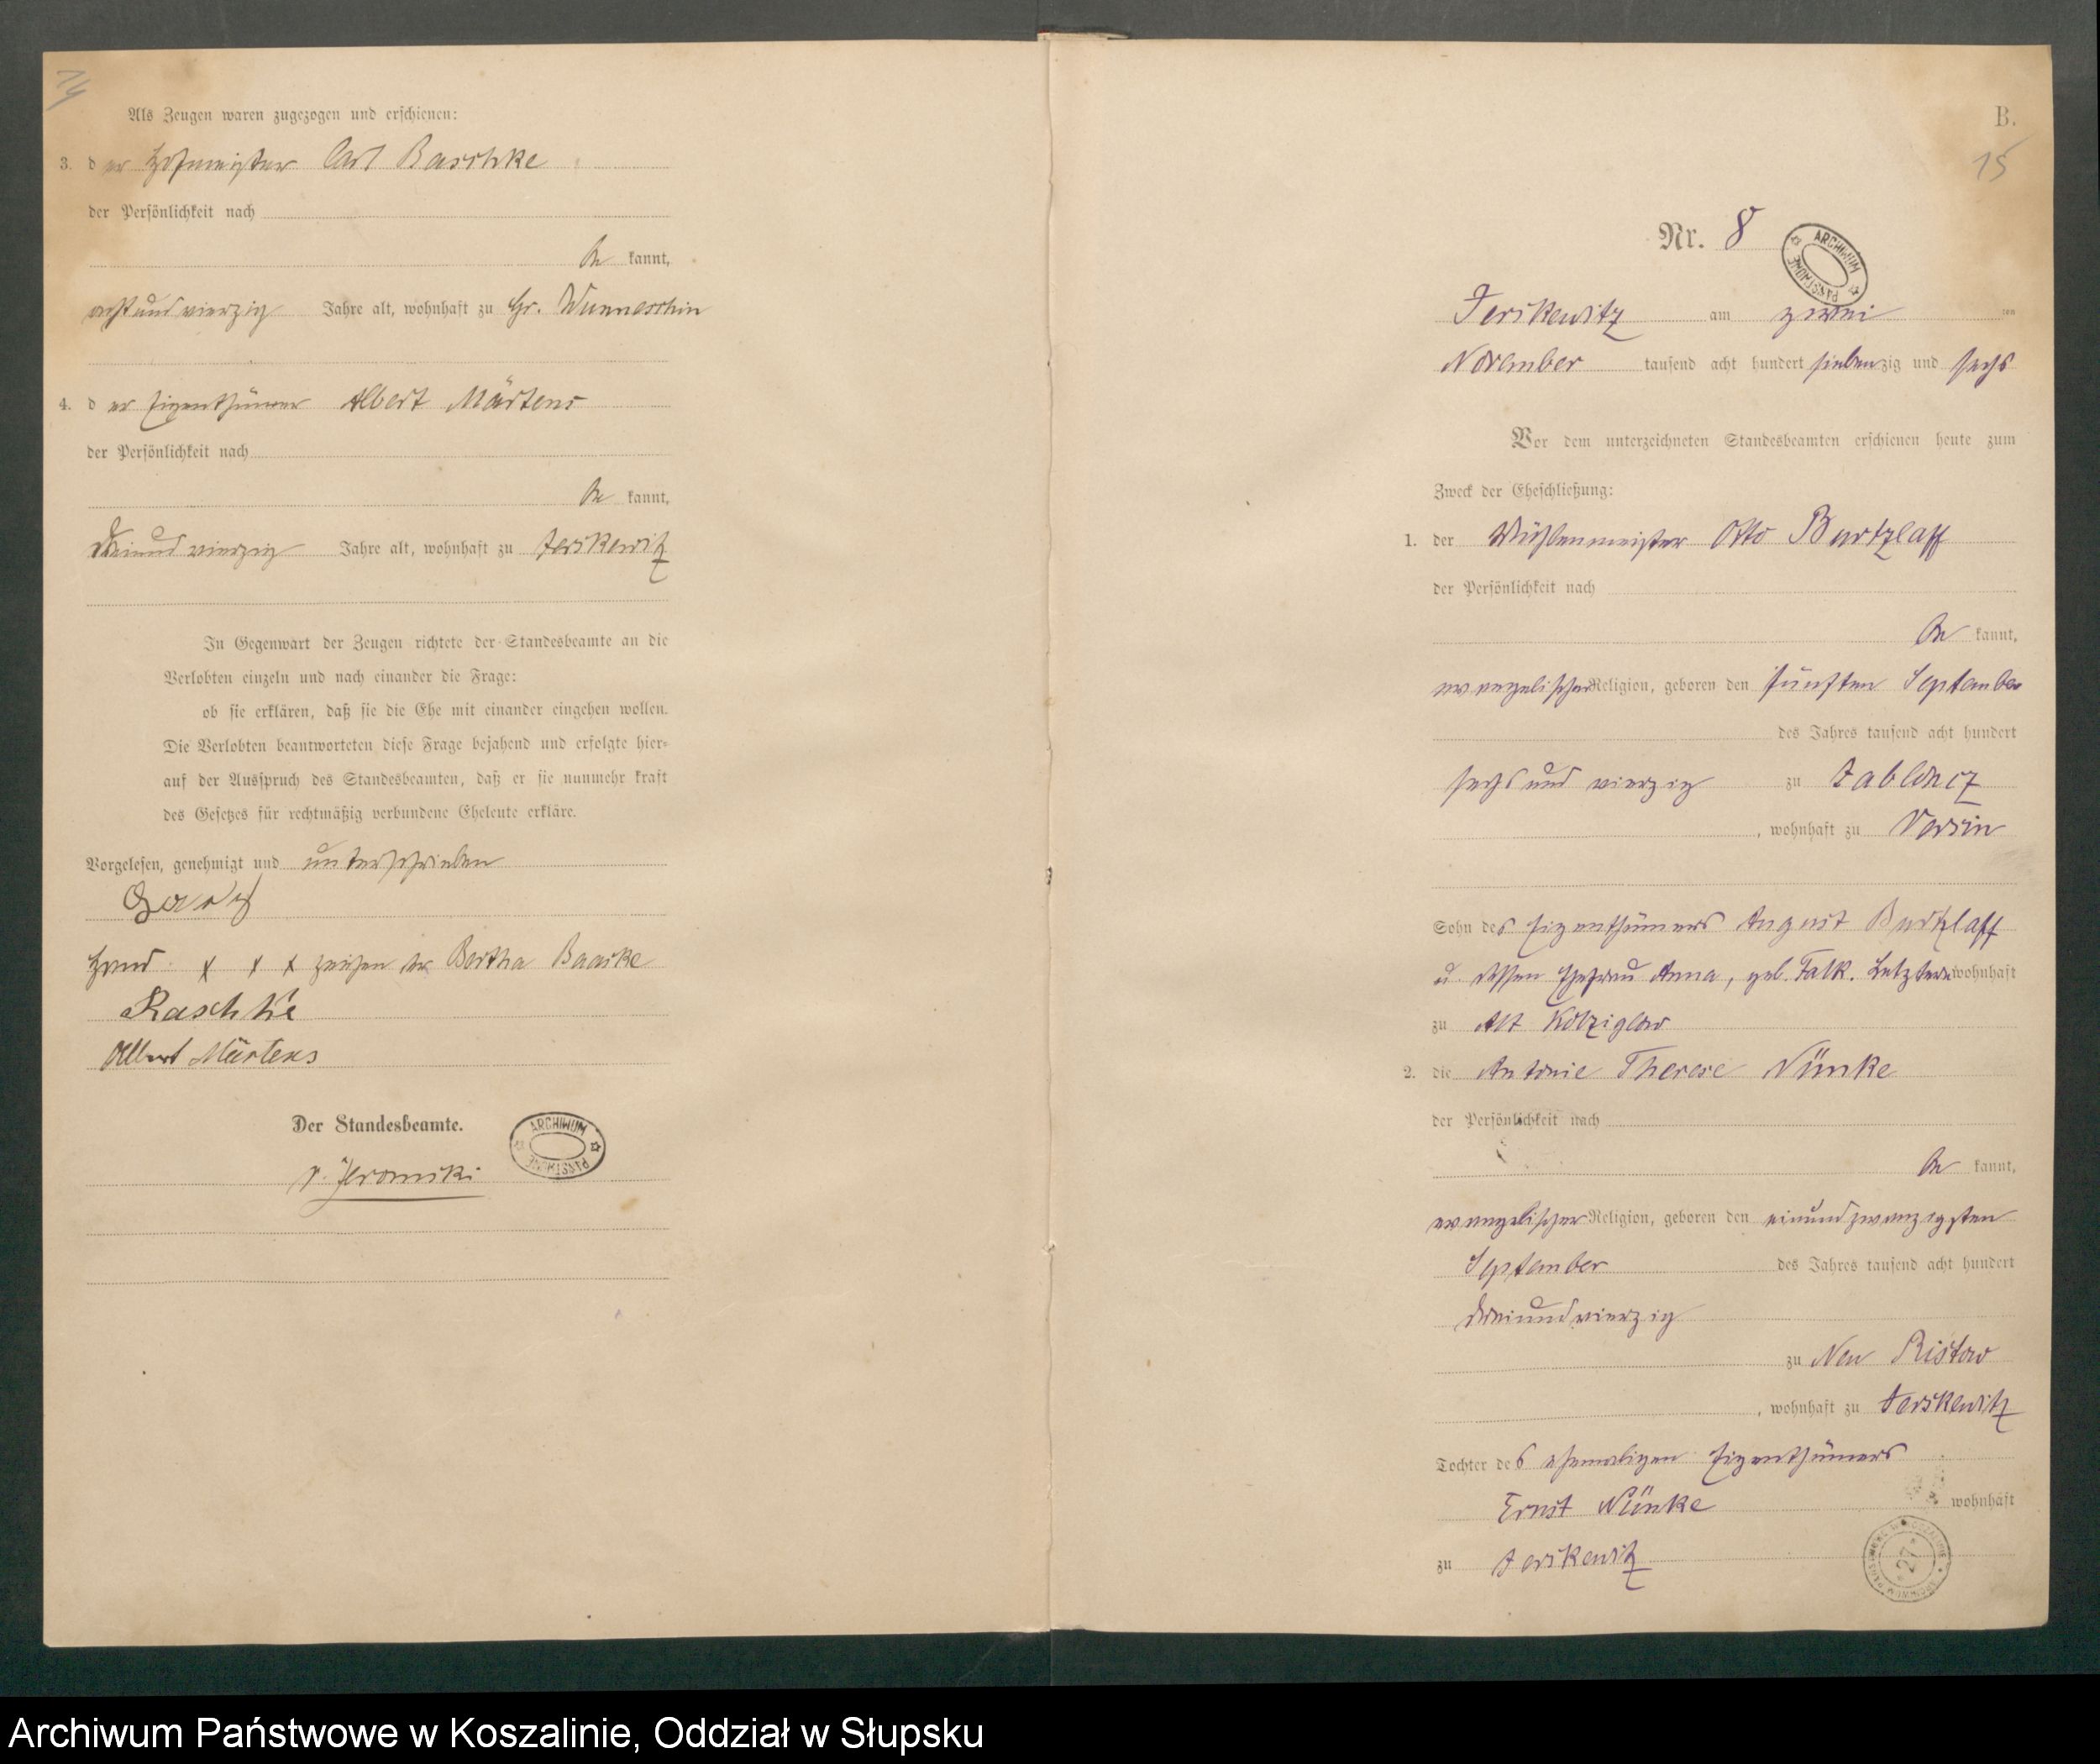 14
Als Zeugen waren zugezogen und erschienen:
3. der Hofmeister Carl Baschke
der Persönlichkeit nach
be kannt,
achtundvierzig Jahre alt, wohnhaft zu Gr. Wunneschin
4. der Eigenthümer Albert Märtens
der Persönlichkeit nach
be kannt,
dreiundvierzig Jahre alt, wohnhaft zu Jerskewitz
In Gegenwart der Zeugen richtete der Standesbeamte an die
Verlobten einzeln und nach einander die Frage:
ob sie erklären, daß sie die Ehe mit einander eingehen wollen.
Die Verlobten beantworteten diese Frage bejahend und erfolgte hier-
auf der Ausspruch des Standesbeamten, daß er sie nunmehr kraft
des Gesetzes für rechtmäßig verbundene Eheleute erkläre.
Vorgelesen, genehmigt und unterschrieben
Hand x x x zeichen der Bertha Baaske
Raschke
Albert Märtens
Der Standesbeamte.
ARCHIWUM PAŃSTWOWE
B.
15
Nr. 8
ARCHIWUM PAŃSTWOWE
Jerskewitz am zwei ten
November tausend acht hundert siebenzig und sechs
Vor dem unterzeichneten Standesbeamten erschienen heute zum
Zweck der Eheschließung:
1. der Mühlenmeister Otto Burtzlaff
der Persönlichkeit nach
be kannt,
evangelischer Religion, geboren den fünften September
des Jahres tausend acht hundert
sechsundvierzig zu Jabloncz
, wohnhaft zu Versin
Sohn des Eigenthümers August Burtzlaff
u. dessen Ehefrau Anna, geb. Falk. Letztere wohnhaft
zu Alt Kolziglow
2. die Antonie Therese Nünke
der Persönlichkeit nach
be kannt,
evangelischer Religion, geboren den einundzwanzigsten
September des Jahres tausend acht hundert
dreiundvierzig
zu Neu Ristow
, wohnhaft zu Jerskewitz
Tochter des ehemaligen Eigenthümers
Ernst Nünke wohnhaft
zu Jerskewitz
27
Archiwum Państwowe w Koszalinie, Oddział w Słupsku